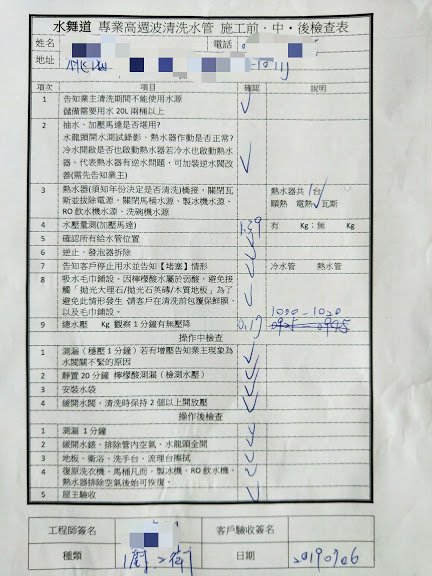 水舞道 專業高週波清洗水管 施工前．中．後檢查表
姓名
電話
地址
項次 項目 確認 說明
1 告知業主清洗期間不能使用水源
儲備需要用水 20L 兩桶以上
2 抽水、加壓馬達是否堪用?
水龍頭開水測試錄影、熱水器作動是否正常?
冷水開啟是否也啟動熱水器若冷水也啟動熱水
器，代表熱水器有逆水問題，可加裝逆水閥改
善(需先告知業主)
3 熱水器(須知年份決定是否清洗)橋接、關閉瓦
斯並拔除電源、關閉馬桶水源、製冰機水源、
RO 飲水機水源、洗碗機水源
熱水器共 1 台
順熱 電熱 瓦斯
4 水壓量測(加壓馬達) 1.39 有 Kg：無 Kg
5 確認所有給水管位置
6 逆止、發泡器拆除
7 告知客戶停止用水並告知【堵塞】情形 冷水管 熱水管
8 吸水毛巾鋪設。因檸檬酸水屬於弱酸，避免接
觸「拋光大理石/拋光石英磚/木質地板」為了
避免此情形發生 請客戶在清洗前包覆保鮮膜
以及毛巾鋪設。
1000-1020
9 總水壓 Kg 觀察 1 分鐘有無壓降
操作中檢查
1 測漏（穩壓 1 分鐘）若有增壓告知業主現象為
水閥關不緊的原因
2 靜置 20 分鐘 檸檬酸測漏（檢測水壓）
3 安裝水袋
4 緩開水閥，清洗時保持 2 個以上開放壓
操作後檢查
1 測漏 1 分鐘
2 緩開水錶、排除管內空氣、水龍頭全開
3 地板、衛浴、洗手台、流理台擦拭
4 復原洗衣機、馬桶凡而，製冰機、RO 飲水機，
熱水器排除空氣後始可恢復。
5 屋主驗收
工程師簽名 客戶驗收簽名
種類 1廚、2衛 日期 20190706